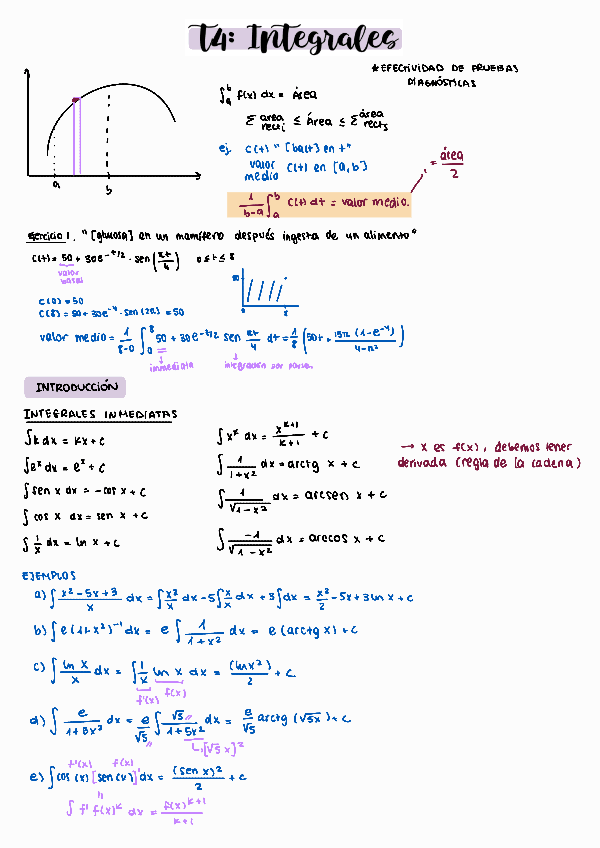 T4: Integrales
* EFECTIVIDAD DE PRUEBAS
DIAGNÓSTICAS
∫ₐᵇ f(x) dx = Área
Σ área recti ≤ Área ≤ Σ área rects
ej. C(t) "[bact] en t"
valor medio C(t) en [a, b]
= área/2
1/(b-a) ∫ₐᵇ C(t) dt = valor medio.
a
b
Ejercicio 1. "[glucosa] en un mamífero después ingesta de un alimento"
C(t) = 50 + 30e^(-t/2) · sen (πt/4) 0 ≤ t ≤ 8
valor basal
C(0) = 50
C(8) = 50 + 30e^(-4) · sen (2π) = 50
50
0
8
valor medio = 1/(8-0) ∫₀⁸ 50 + 30e^(-t/2) sen πt/4 dt = 1/8 (50t +
inmediata
integración por partes.
INTRODUCCIÓN
INTEGRALES INMEDIATAS
∫k dx = kx + c
∫e^x dx = e^x + c
∫sen x dx = -cos x + c
∫cos x dx = sen x + c
∫1/x dx = ln x + c
∫x^k dx = x^(k+1)/(k+1) + c
∫1/(1+x²) dx = arctg x + c
∫1/√(1-x²) dx = arcsen x + c
∫-1/√(1-x²) dx = arccos x + c
→ x es f(x), debemos tener
derivada (regla de la cadena)
EJEMPLOS
a) ∫(x²-5x+3)/x dx = ∫x²/x dx - 5∫x/x dx + 3∫dx = x²/2 - 5x + 3 ln x + c
b) ∫e(1+x²)^(-1) dx = e ∫1/(1+x²) dx = e (arctg x) + c
c) ∫ln x/x dx = ∫1/x ln x dx = (ln x²)/2 + c
f'(x) f(x)
d) ∫e/(1+5x²) dx = e/√5 ∫√5/(1+5x²) dx = e/√5 arctg (√5x) + c
[√5 x]²
f'(x) f(x)
e) ∫cos (x) [sen (x)]¹ dx = (sen x)²/2 + c
∫ f' f(x)^k dx = f(x)^(k+1)/(k+1)